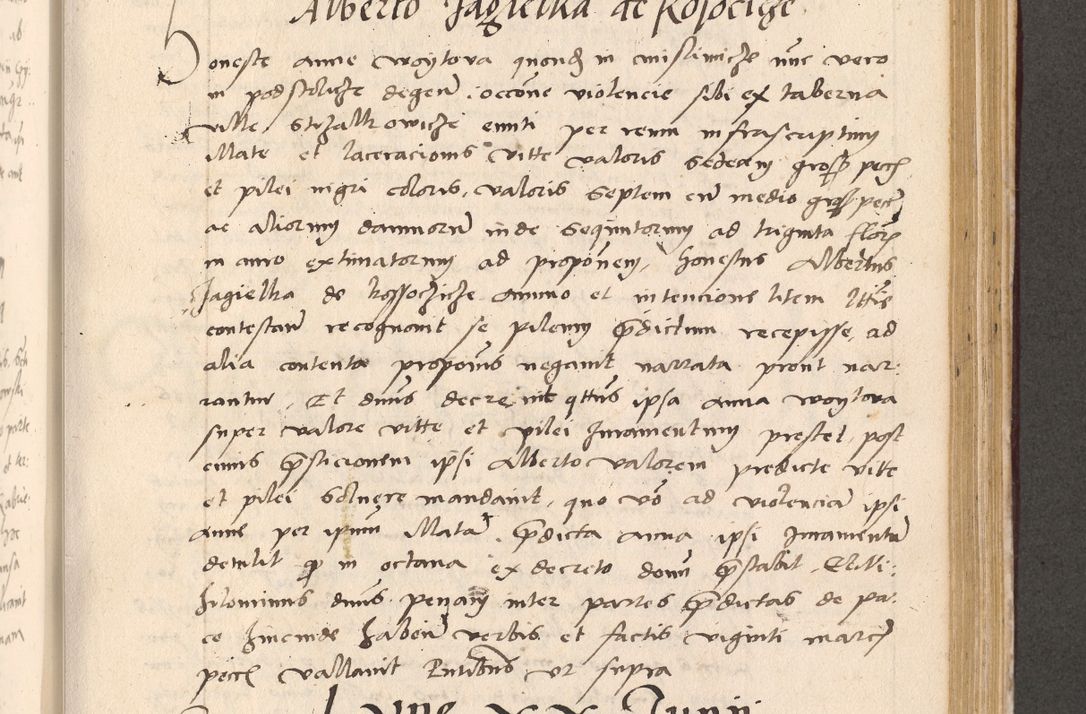 Alberto Jagielka de Kosocicze
Honeste Anne Woytova quond in mislimicze nunc vero
in podstolicze degen, occone violencie sibi ex taberna
ville Strzalkowicze eunti per reum infrascriptum
illate et laceracionis vitte valoris sedecim gross pecc
et pilei nigri coloris, valoris septem cum medio gross pecc
ac aliorum damnorum inde sequutorum ad triginta floren
in auro extimatorum ad proponem, honestus Albertus
Jagielka de kossoczicze animo et intencione litem lttis
contestan recognovit se pileum pdictum recepisse, ad
alia contenta proponis negavit narrata prout nar:
rantur. Et dnus decrevit qttus ipsa anna woytova
super valore vitte et pilei Juramentum prestet, post
cuius psticionem ipsi Alberto valorem predicte vitte
et pilei solvere mandavit, quo vo ad violenciam ipsi
anne per ipum illatam, pdicta anna ipsi Juramentum
detulit qd in octava ex decreto domi pstabit. Et Ni:
hilominus dnus penam inter partes pdictas de pa:
ce hincinde haben verbis et factis viginti marc
pecc vallavit Pntibus ut supra
Junij